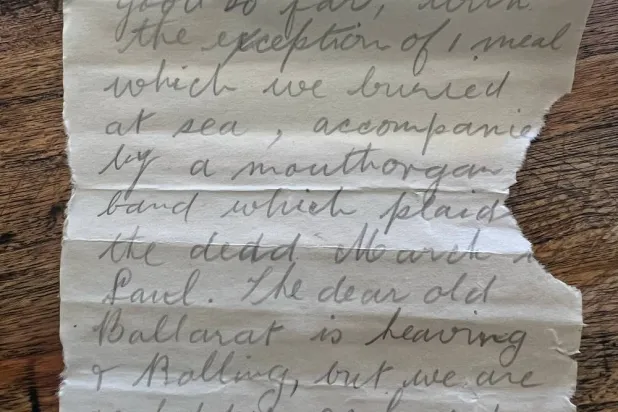 good so far, with
the exception of 1 meal
which we buried
at sea, accompanie
by a mouthorgan
band which plaid
the dead March
Saul. The dear old
Ballarat is heaving
& Rolling, but we are